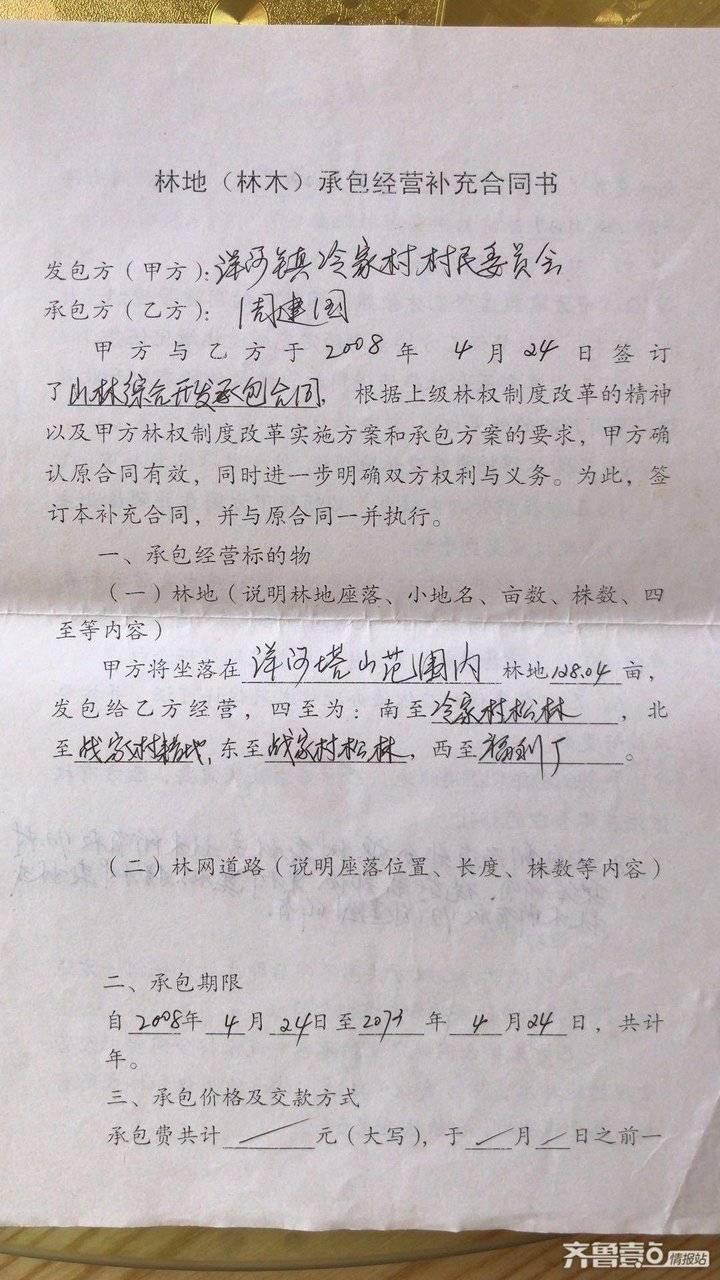 林地（林木）承包经营补充合同书
发包方（甲方）：洋河镇冷家村村民委员会
承包方（乙方）：周建国
甲方与乙方于2008年4月24日签订
了山林综合开发承包合同，根据上级林权制度改革的精神
以及甲方林权制度改革实施方案和承包方案的要求，甲方确
认原合同有效，同时进一步明确双方权利与义务。为此，签
订本补充合同，并与原合同一并执行。
一、承包经营标的物
（一）林地（说明林地座落、小地名、亩数、株数、四
至等内容）
甲方将坐落在洋河塔山范围内林地128.04亩，
发包给乙方经营，四至为：南至冷家村松林，北
至战家村耕地，东至战家村松林，西至福利厂。
（二）林网道路（说明座落位置、长度、株数等内容）
二、承包期限
自2008年4月24日至年4月24日，共计
年。
三、承包价格及交款方式
承包费共计元（大写），于月日之前一
齐鲁壹点
情报站